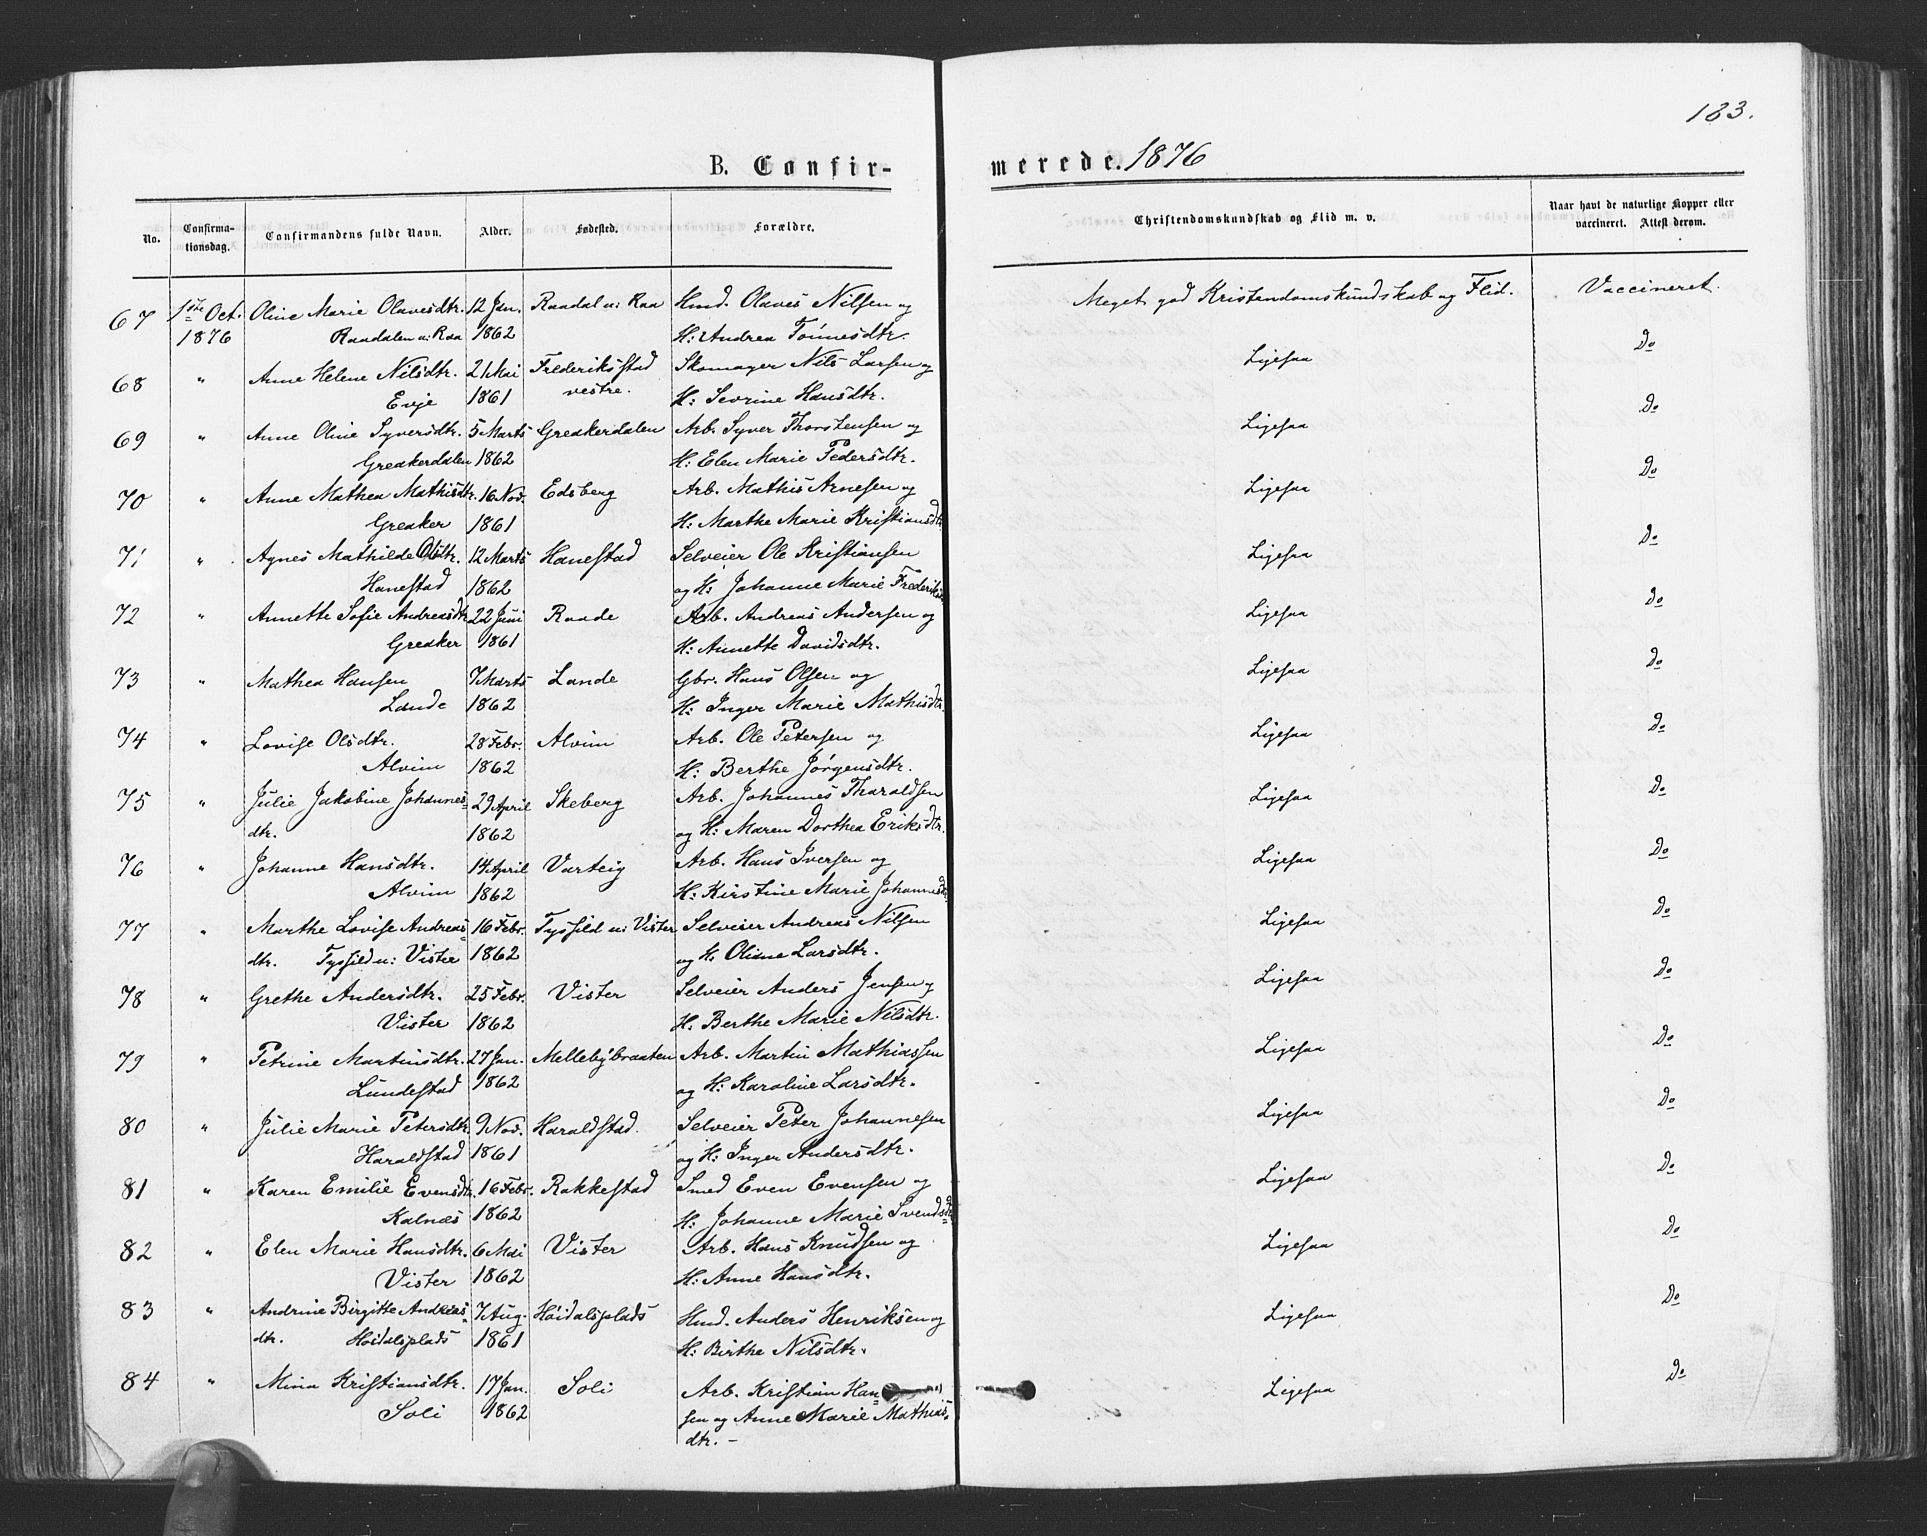 183.
B. Confirmerede. 1876
No.
Confirmationsdag.
Confirmandens fulde Navn.
Alder.
Fødested.
Forældre.
Christendomskundskab og Flid m. v.
Naar havt de naturlige Kopper eller vaccineret. Attest derom.
67 1ste Oct. Oline Marie Olavesdtr. 12 Jan. Raadal u: Raa Hmd. Olaves Nilsen og Meget god Kristendomskundskab og Flid. Vaccineret.
1876 Raadalen u: Raa 1862 H: Andrea Tønnesdtr.
68 " Anne Helene Nilsdtr. 21 Mai Frederiksstad Skomager Nils Larsen og Ligesaa Do
Evje 1861 vestre. H: Sevrine Hansdtr.
69 " Anne Oline Syversdtr. 5 Marts Greakerdalen Arb. Syver Thorstensen og Ligesaa Do
Greakerdalen 1862 H: Elen Marie Pedersdtr.
70 " Anne Mathea Mathisdtr. 16 Nov. Edsberg Arb. Mathis Arnesen og Ligesaa Do
Greaker 1861 H: Marthe Marie Kristiansdtr
71 " Agnes Mathilde Olsdtr. 12 Marts Hanestad Selveier Ole Kristiansen Ligesaa Do
Hanestad 1862 og H: Johanne Marie Frederiks
72 " Annette Sofie Andreasdtr 22 Juni Raade Arb. Andreas Andersen og Ligesaa Do
Greaker 1861 H: Annette Davidsdtr.
73 " Mathea Hansen 7 Marts Lande Gbr. Hans Olsen og Ligesaa Do
Lande 1862 H: Inger Marie Mathisdtr.
74 " Lovise Olsdtr. 28 Febr. Alvim Arb. Ole Petersen og Ligesaa Do
Alvim 1862 H: Berthe Jørgensdtr.
75 " Julie Jakobine Johannes= 29 April Skeberg Arb. Johannes Tharaldsen Ligesaa Do
dtr. 1862 og H: Maren Dorthea Eriksdtr.
76 " Johanne Hansdtr. 14 April Varteig Arb. Hans Iversen og Ligesaa Do
Alvim 1862 H: Kirstine Marie Johannesdtr
77 " Marthe Lovise Andreas= 16 Febr. Tyssild u: Vister Selveier Andreas Nilsen Ligesaa Do
dtr. Tyssild u: Vister 1862 og H. Oliane Larsdtr.
78 " Grethe Andersdtr. 25 Febr. Vister Selveier Anders Jensen og Ligesaa Do
Vister 1862 H: Berthe Marie Nilsdtr.
79 " Petrine Martinsdtr. 27 Jan. Mellebybraaten Arb. Martin Mathiassen Ligesaa Do
Lundestad 1862 og H: Karoline Larsdtr.
80 " Julie Marie Petersdtr. 9 Nov. Haraldstad. Selveier Peter Johannesen Ligesaa Do
Haraldstad 1861 og H: Inger Andersdtr.
81 " Karen Emilie Evensdtr. 16 Febr. Rakkestad Smed Even Evensen og Ligesaa Do
Kalnæs 1862 H: Johanne Marie Svendsdtr
82 " Elen Marie Hansdtr. 6 Mai Vister Arb. Hans Knudsen og Ligesaa Do
Vister 1862 H: Anne Hansdtr.
83 " Andrine Birgitte Andreas= 7 Aug. Høidalsplads Hmd. Anders Henriksen og Ligesaa Do
dtr. Høidalsplads 1861 H: Birthe Nilsdtr.
84 " Mina Kristiansdtr. 17 Jan. Soli Arb. Kristian Han= Ligesaa Do
Soli 1862 sen og Anne Marie Mathias=
dtr. -